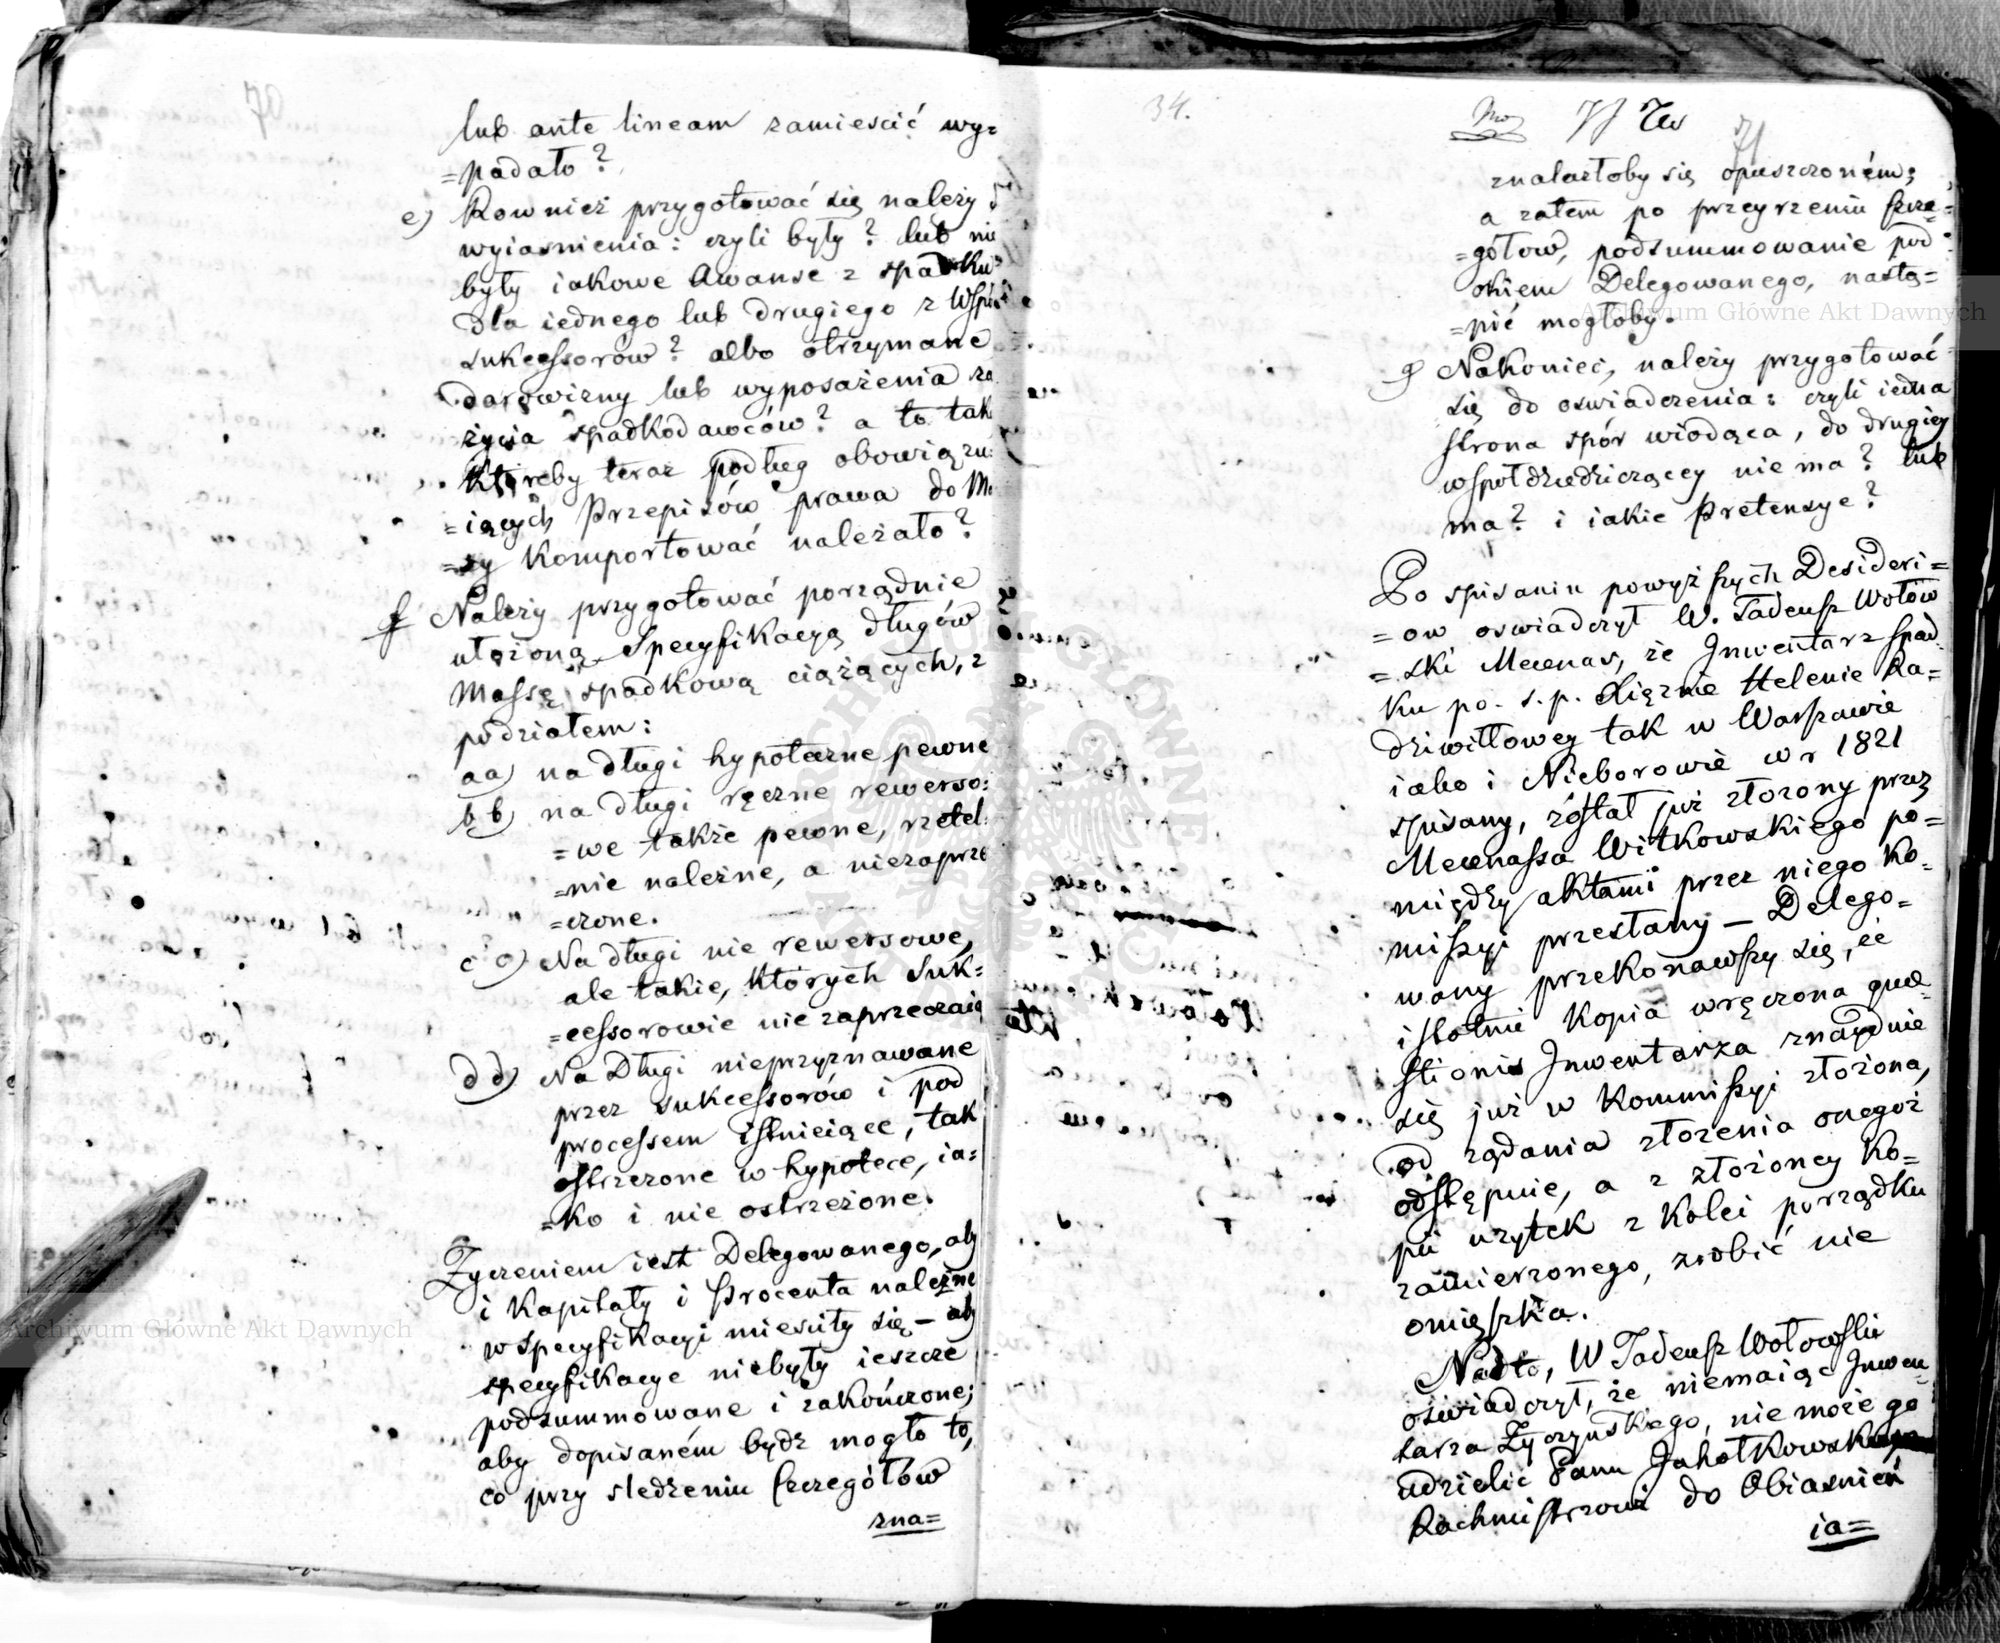 70
lub ante lineam zamieścić wy=
=padało?
e) Rownież przygotować się należy
wyiasnienia: czyli były? lub nie
były iakowe Awanse z spadku
dla iednego lub drugiego z Wspól
sukcessorów? albo otrzymane
darowizny lub wyposażenia za
życia spadkodawców? a to tak
któreby teraz podług obowiązu:
=iących Przepisów prawa do Ma
=ssy komportować należało?
f Należy przygotować porządnie
ułożoną Specyfikacyą długów
Massę spadkową ciążących, z
podziałem:
aa) na długi hypoteczne pewne
bb) na długi ręczne rewerso:
=we także pewne, rzetel:
=nie należne, a niezaprze
=czone.
cc) Na długi nie rewersowe,
ale takie, których Suk=
=cessorowie nie zaprzeczaią
dd) Na Długi nieprzyznawane
przez sukcessorów i pod
processem istnieiące, tak
ostrzeżone w hypotece, ia=
=ko i nie ostrzeżone.
Życzeniem iest Delegowanego, aby
i Kapitały i Procenta należne
w specyfikacyi mieściły się – aby
specyfikacye niebyły ieszcze
podsummowane i zakończone;
aby dopisaném bydź mogło to,
co przy śledzeniu szczegółów
zna=
34.
71
znalazłoby się opuszczoném;
a zatém po przeyrzeniu szcze=
=gółow, podsummowanie pod
okiem Delegowanego, nastą=
=pić mogłoby.
g Nakoniec, należy przygotować
się do oswiadczenia: czyli iedna
strona spór wiodąca, do drugiey
współdziedziczącey nie ma? lub
ma? i iakie Pretensye?
Po spisaniu powyższych Desideri=
=ow oswiadczył W. Tadeusz Wołow
=ski Mecenas, że Inwentarz spad
ku po s. p. Xiężnie Helenie Ra=
dziwiłłowey tak w Warszawie
iako i Nieborowie w r 1821
spisany, został już złożony przez
Mecenassa Witkowskiego po=
między aktami przez niego Ko=
missyi przesłany – Delego=
wany przekonawszy się, że
istotnie kopia wręczona quae=
stionis Inwentarza znayduie
się już w Kommissyi złożona,
od żądania złożenia onegoż
odstępuie, a z złożoney Ko=
pii użytek z kolei porządku
zamierzonego, zrobić nie
omięszka.
Nadto, W Tadeusz Wołowski
oświadczył, że niemaiąc Inwen
tarza Zyczyńskiego, nie może go
udzielić Panu
Rachmistrzowi do Obiasnień
ia=
Archiwum Główne Akt Dawnych
Archiwum Główne Akt Dawnych
ARCHIWUM GŁÓWNE AKT DAWNYCH